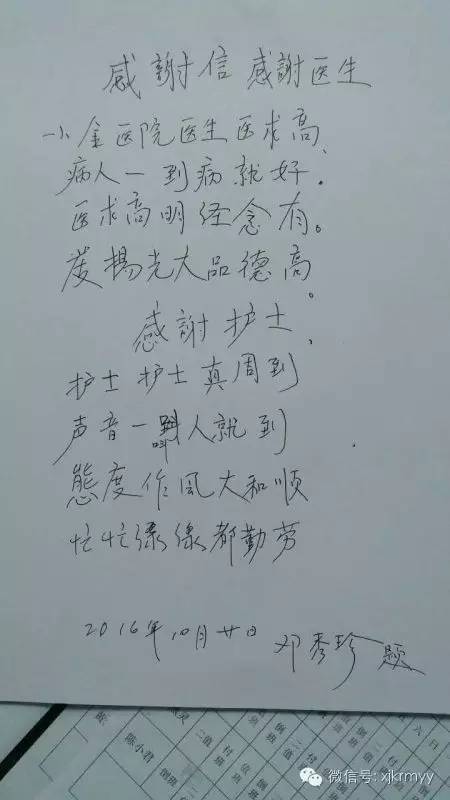 感謝信 感謝医生
小金医院医生医求高、
病人一到病就好.
医求高明经念有。
发揚光大品德高。
感謝护士、
护士护士真周到
声音一叫人就到
態度作风大和順
忙忙渌渌都勤劳
2016年10月廿日 邓秀珍 题
微信号: xjkrmyy
陈小君
倒班
二值
付班
倒值